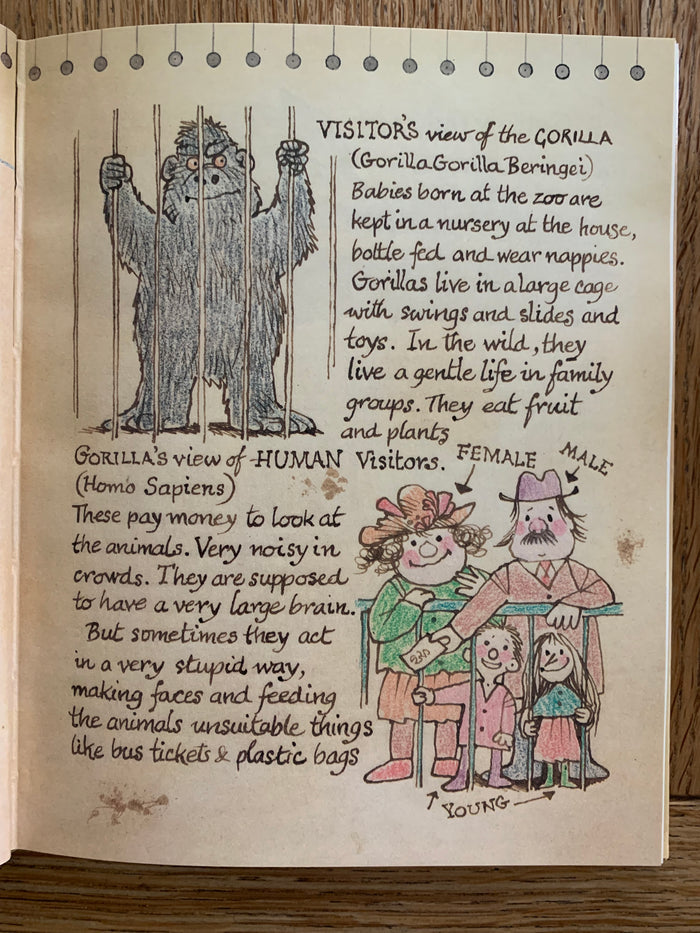 VISITOR'S view of the GORILLA
(Gorilla Gorilla Beringei)
Babies born at the zoo are
kept in a nursery at the house,
bottle fed and wear nappies.
Gorillas live in a large cage
with swings and slides and
toys. In the wild, they
live a gentle life in family
groups. They eat fruit
and plants
GORILLA'S view of HUMAN Visitors.
(Homo Sapiens)
These pay money to look at
the animals. Very noisy in
crowds. They are supposed
to have a very large brain.
But sometimes they act
in a very stupid way,
making faces and feeding
the animals unsuitable things
like bus tickets & plastic bags
FEMALE
MALE
YOUNG